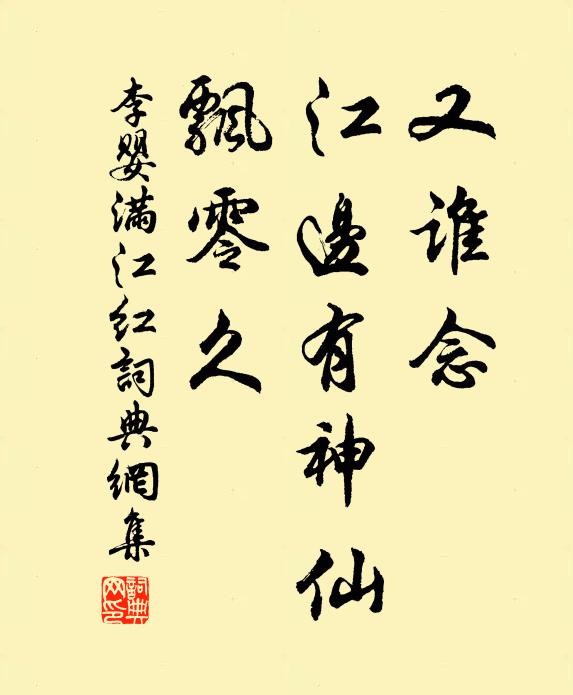 又誰念
江邊有神仙
飄零久
李嬰滿江红詞典網集
詞典网印